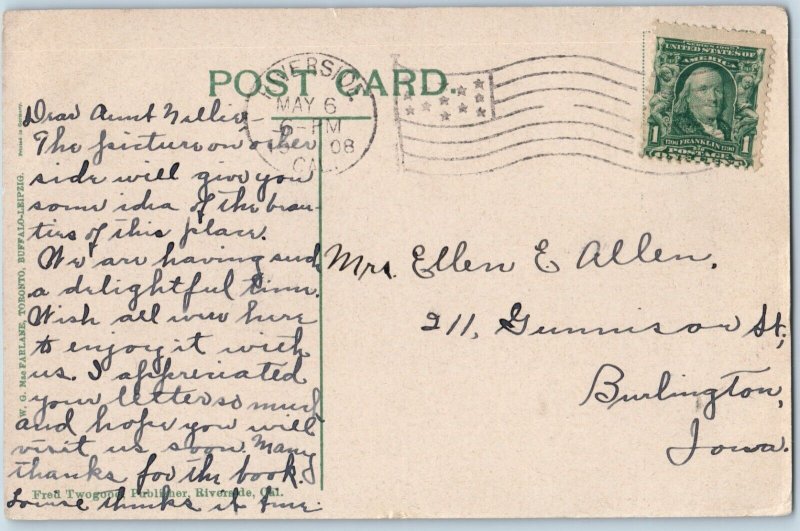 POST CARD.
RIVERSIDE,
MAY 6
6-PM
08
CAL.
SERIES 1902
UNITED STATES OF
AMERICA
1
1
1706 FRANKLIN 1790
POSTAGE
Dear Aunt Nellie-
The picture on other
side will give you
some idea of the beau-
ties of this place.
We are having such
a delightful time.
Wish all were here
to enjoy it with
us. I appreciated
your letter so much
and hope you will
visit us soon. Many
thanks for the book.
Louise thinks it fine.
Mrs. Ellen E Allen.
211, Gunnison St,
Burlington,
Iowa.
Printed in Germany.
W. G. MacFARLANE, TORONTO, BUFFALO-LEIPZIG.
Fred Twogood, Publisher, Riverside, Cal.